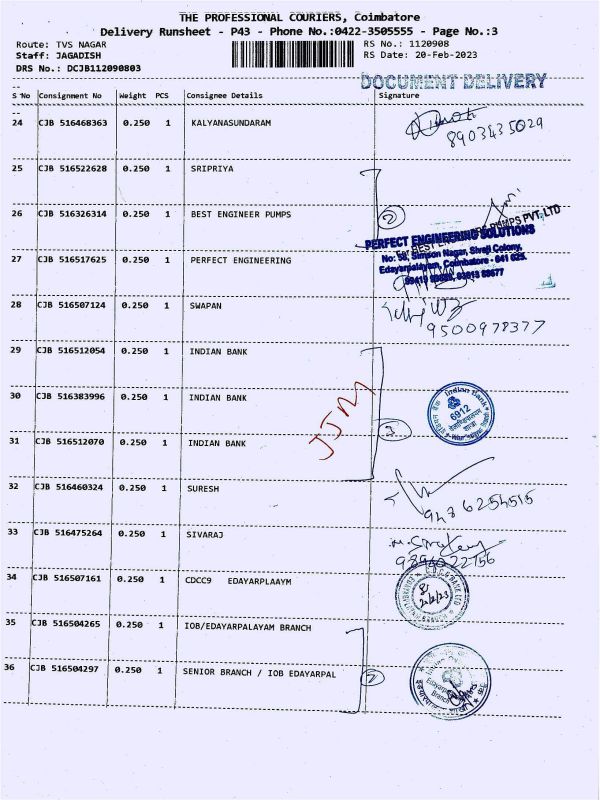 THE PROFESSIONAL COURIERS, Coimbatore
Delivery Runsheet - P43 - Phone No.:0422-3505555 - Page No.:3
Route: TVS NAGAR RS No.: 1120908
Staff: JAGADISH RS Date: 20-Feb-2023
DRS No.: DCJB112090803
DOCUMENT DELIVERY
--
S No Consignment No Weight PCS Consignee Details Signature
--
24 CJB 516468363 0.250 1 KALYANASUNDARAM
8903435029
25 CJB 516522628 0.250 1 SRIPRIYA
26 CJB 516326314 0.250 1 BEST ENGINEER PUMPS 2
PUMPS PVT. LTD
PERFECT ENGINEERING SOLUTIONS
No: 58, Simson Nagar, Sivaji Colony,
Edayarpalayam, Coimbatore - 641 025.
27 CJB 516517625 0.250 1 PERFECT ENGINEERING
28 CJB 516507124 0.250 1 SWAPAN
9500978377
29 CJB 516512054 0.250 1 INDIAN BANK
30 CJB 516383996 0.250 1 INDIAN BANK
JJM
Indian Bank
6912
31 CJB 516512070 0.250 1 INDIAN BANK 3
32 CJB 516460324 0.250 1 SURESH
33 CJB 516475264 0.250 1 SIVARAJ
34 CJB 516507161 0.250 1 CDCC9 EDAYARPLAAYM
20/2/23
35 CJB 516504265 0.250 1 IOB/EDAYARPALAYAM BRANCH
36 CJB 516504297 0.250 1 SENIOR BRANCH / IOB EDAYARPAL 2